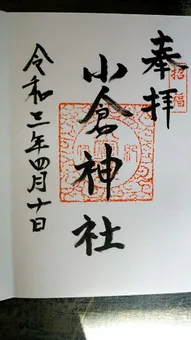 奉拝
招福
小倉神社
令和三年四月十日